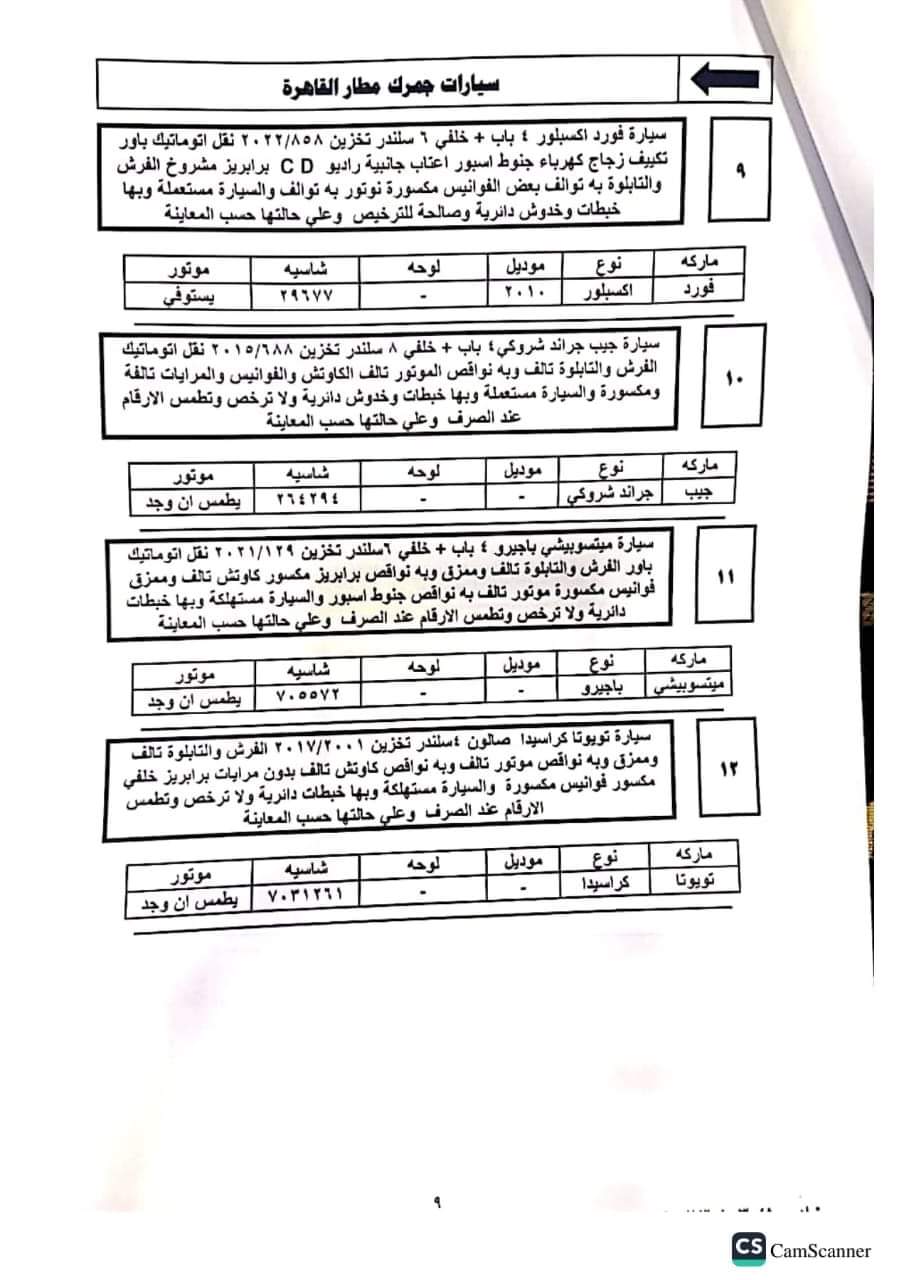 سيارات جمرك مطار القاهرة
٩
سيارة فورد اكسبلور ٤ باب + خلفي ٦ سلندر تخزين ٢٠٢٢/٨٥٨ نقل اتوماتيك باور
تكييف زجاج كهرباء جنوط اسبور اعتاب جانبية راديو C D برابريز مشروخ الفرش
والتابلوة به توالف بعض الفوانيس مكسورة نوتور به توالف والسيارة مستعملة وبها
خبطات وخدوش دائرية وصالحة للترخيص وعلي حالتها حسب المعاينة
ماركه نوع موديل لوحه شاسيه موتور
فورد اكسبلور ٢٠١٠ - ٢٩٦٧٧ يستوفي
١٠
سيارة جيب جراند شروكي٤ باب + خلفي ٨ سلندر تخزين ٢٠١٥/٦٨٨ نقل اتوماتيك
الفرش والتابلوة تالف وبه نواقص الموتور تالف الكاوتش والفوانيس والمرايات تالفة
ومكسورة والسيارة مستعملة وبها خبطات وخدوش دائرية ولا ترخص وتطمس الارقام
عند الصرف وعلي حالتها حسب المعاينة
ماركه نوع موديل لوحه شاسيه موتور
جيب جراند شروكي - - ٢٦٤٢٩٤ يطمس ان وجد
١١
سيارة ميتسوبيشي باجيرو ٤ باب + خلفي ٦سلندر تخزين ٢٠٢١/١٢٩ نقل اتوماتيك
باور الفرش والتابلوة تالف وممزق وبه نواقص برابريز مكسور كاوتش تالف وممزق
فوانيس مكسورة موتور تالف به نواقص جنوط اسبور والسيارة مستهلكة وبها خبطات
دائرية ولا ترخص وتطمس الارقام عند الصرف وعلي حالتها حسب المعاينة
ماركه نوع موديل لوحه شاسيه موتور
ميتسوبيشي باجيرو - - ٧٠٥٥٧٢ يطمس ان وجد
١٢
سيارة تويوتا كراسيدا صالون ٤سلندر تخزين ٢٠١٧/٢٠٠١ الفرش والتابلوة تالف
وممزق وبه نواقص موتور تالف وبه نواقص كاوتش تالف بدون مرايات برابريز خلفي
مكسور فوانيس مكسورة والسيارة مستهلكة وبها خبطات دائرية ولا ترخص وتطمس
الارقام عند الصرف وعلي حالتها حسب المعاينة
ماركه نوع موديل لوحه شاسيه موتور
تويوتا كراسيدا - - ٧٠٣١٢٦١ يطمس ان وجد
٩
CS CamScanner